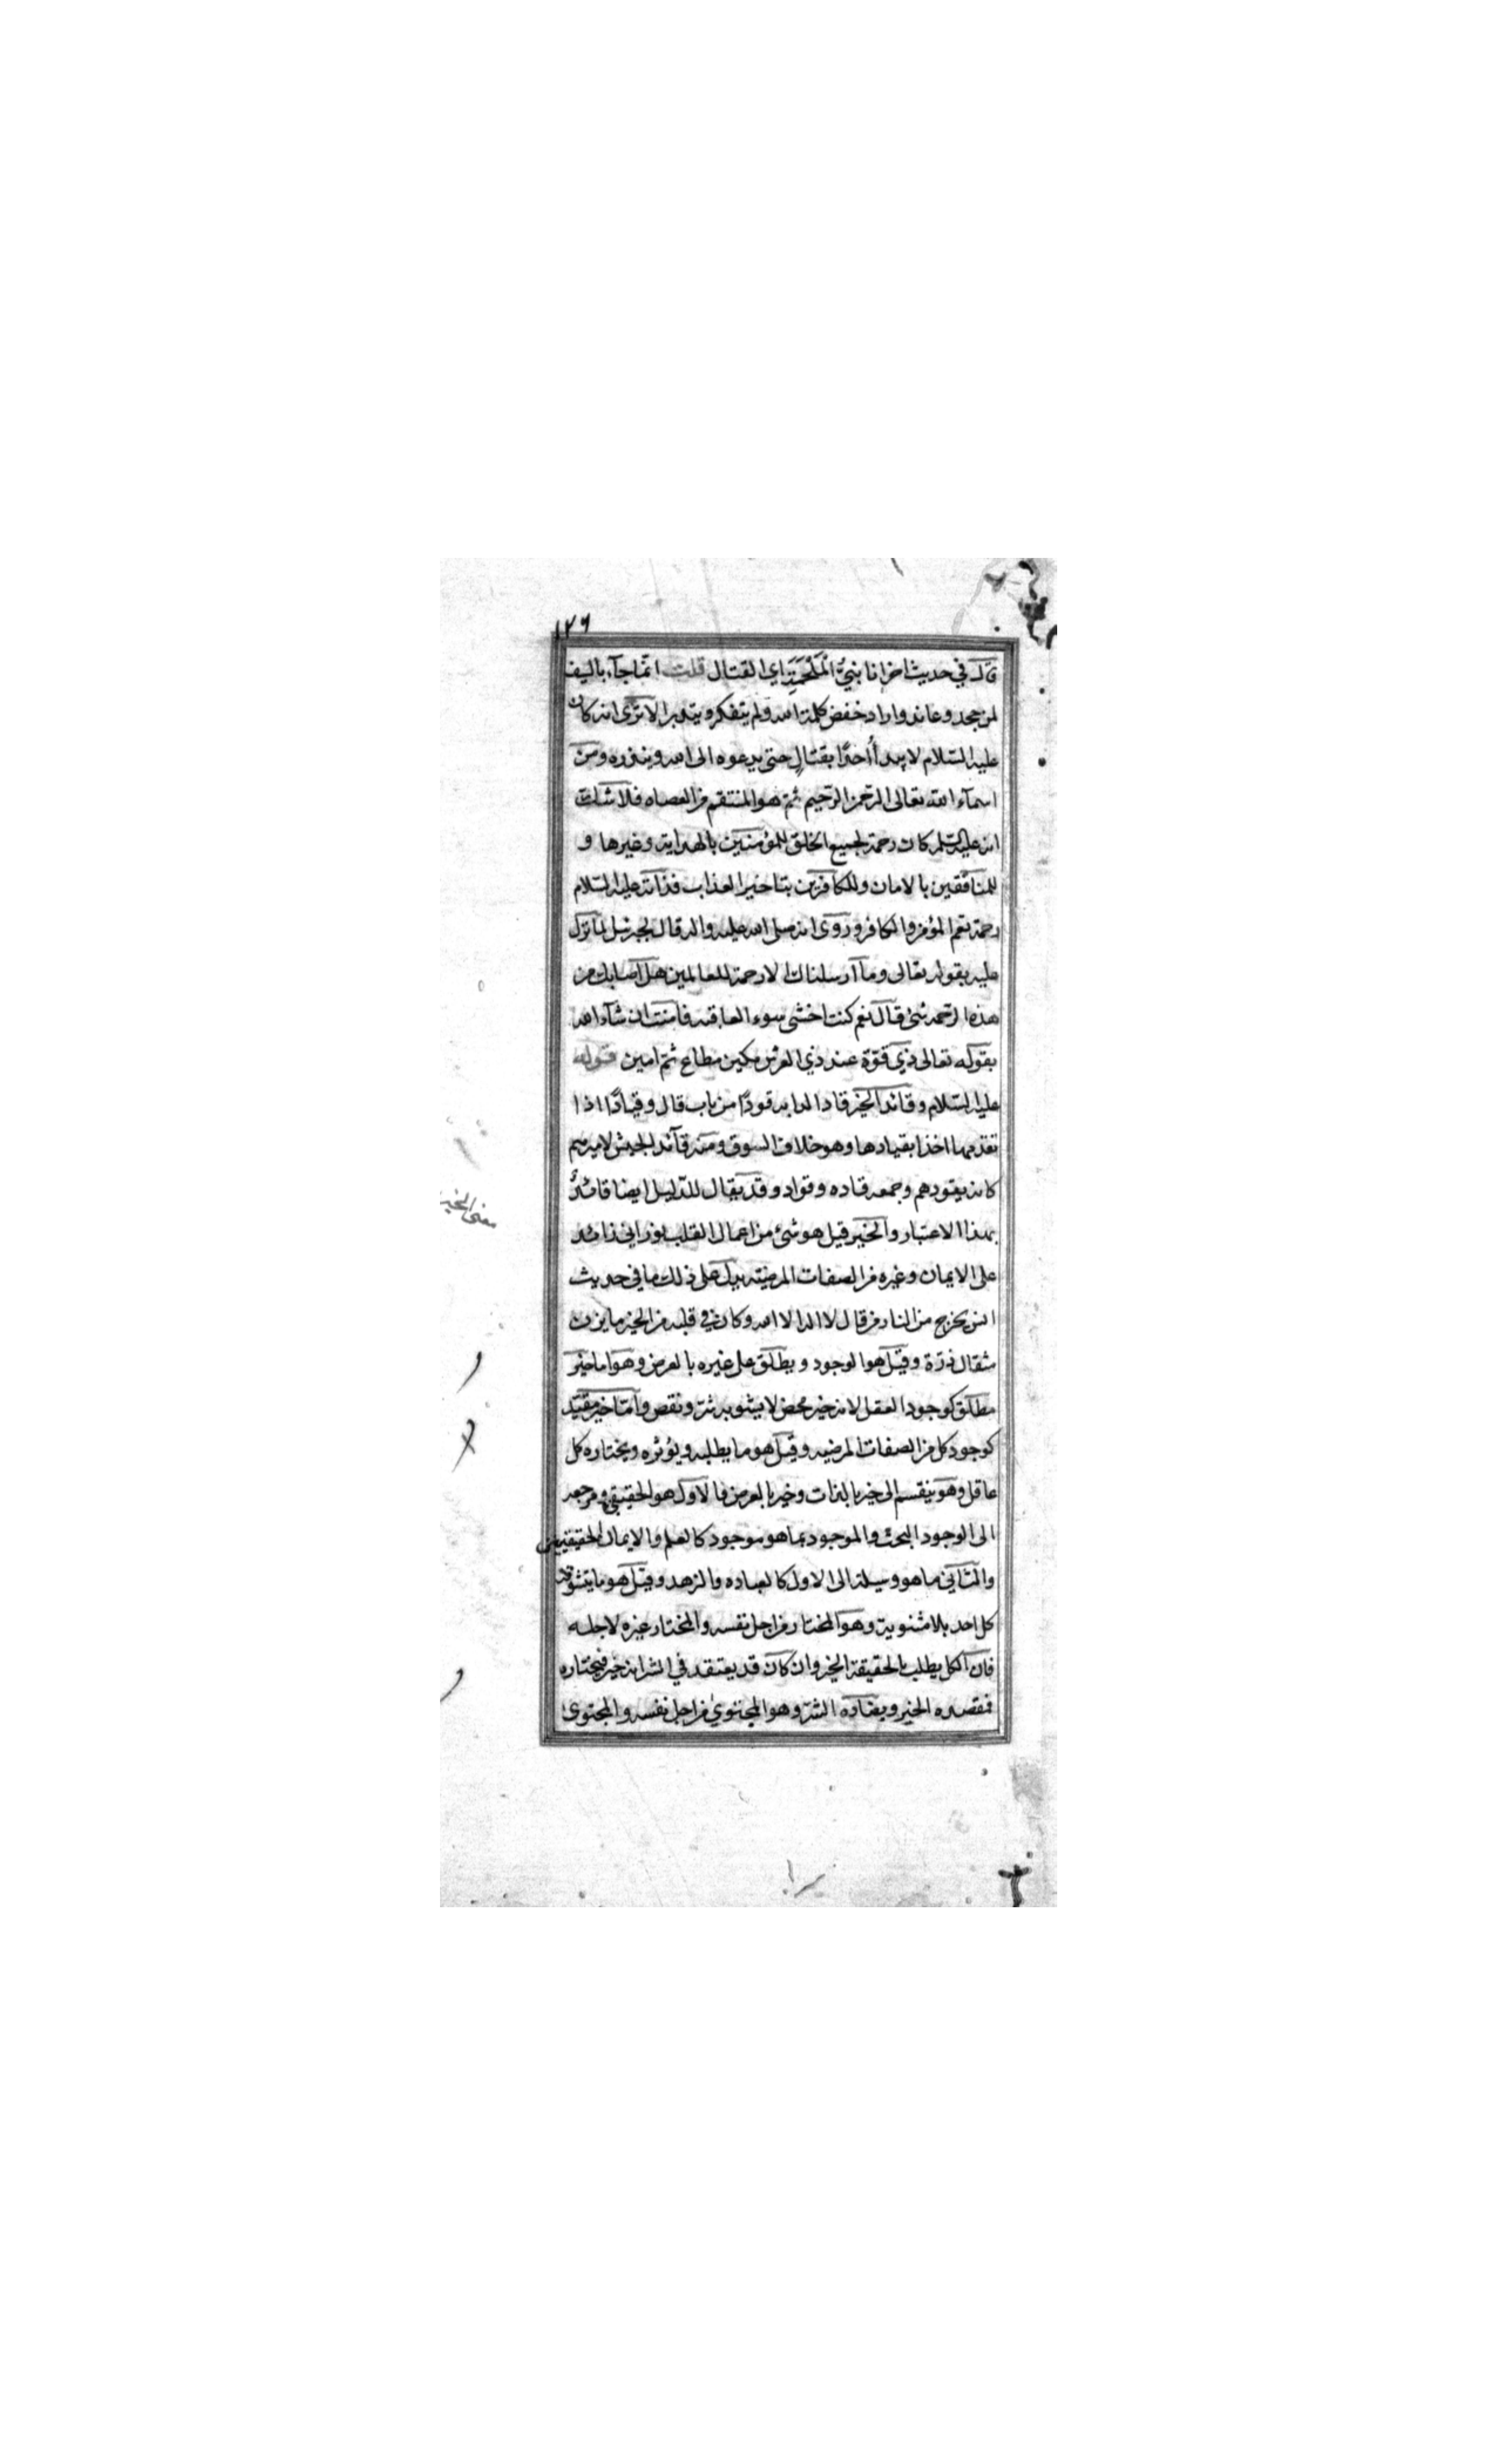 ١٢٦
قال في حديث اخر انا بنيُّ الْمَلْحَمَةِ اي القتال قلت انّما جآء بالسيف
لمن جحد وعاند واراد خفض كلمة الله ولم يتفكر ويتدبر الا ترى انه كان
عليه السّلام لا يبدأ أحدًا بقتالٍ حتى يدعوه الى الله وينذره ومن
اسمآء الله تعالى الرّحمن الرّحيم ثمّ هو المنتقم من العصاه فلا شك
انه عليه السّلم كان رحمة لجميع الخلق للمؤمنين بالهداية وغيرها و
للمنافقين بالامان وللكافرين بتاخير العذاب فذاته عليه السّلام
رحمة تعم المؤمن والكافر وروى انه صلى الله عليه واله قال لجبرئيل لما نزل
عليه بقوله تعالى وما ارسلناك الا رحمة للعالمين هل اصابك من
هذه الرّحمه شئ قال نعم كنت اخشى سوء العاقبه فامنت ان شآء الله
بقوله تعالى ذي قوّة عند ذي العرش مكين مطاع ثمّ امين قوله
عليه السّلام وقائد الخير قاد الدابه قودًا من باب قال وقيادًا اذا
تقدمها اخذا بقيادها وهو خلاف السوق ومنه قآئد الجيش لاميرهم
كانه يقودهم وجمعه قاده وقواد وقد يقال للدّليل ايضا قائدٌ
بهذا الاعتبار والخير قيل هو شئ من اعمال القلب نوراني زائد
على الايمان وغيره من الصفات المرضيّة يدل على ذلك ما في حديث
انس يخرج من النار من قال لا اله الا الله وكان في قلبه من الخير ما يزن
مثقال ذرّة وقيل هو الوجود ويطلق على غيره بالعرض وهو اما خير
مطلق كوجود العقل لانه خير محض لا يشوبه شرّ ونقص وامّا خير مقيّد
كوجود كل من الصفات المرضيه وقيل هو ما يطلبه ويؤثره ويختاره كل
عاقل وهو ينقسم الى خير بالذات وخير بالعرض فالاول هو الحقيقي ومرجعه
الى الوجود البحت والموجود بما هو موجود كالعلم والايمان الحقيقيين
والثاني ما هو وسيلة الى الاول كالعباده والزهد وقيل هو ما يتشوقه
كل احد بلا مثنوية وهو المختار من اجل نفسه والمختار غيره لاجله
فان الكل يطلب بالحقيقة الخير وان كان قد يعتقد في الشر انه خير فيختاره
فمقصده الخير ويضاده الشرّ وهو المجتوى من اجل نفسه والمجتوى
معنى الخير